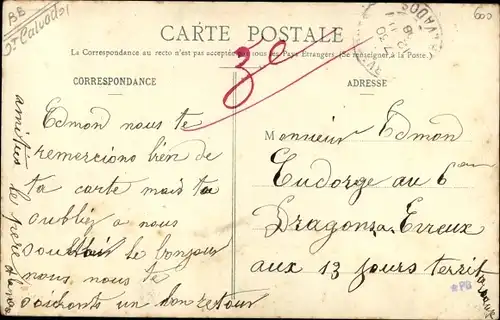 BB
Calvados
CARTE POSTALE
La Correspondance au recto n'est pas acceptée par tous les Pays Etrangers. (Se renseigner à la Poste.)
CORRESPONDANCE
ADRESSE
30
600
Edmond nous te
remercions bien de
ta carte mais ta
oublier a nous
le bonjour
nous nous te
un bon retour
amitiés le père
Monsieur Edmond
Eudorge au 6
Dragons a Evreux
aux 13 jours territ
*PB